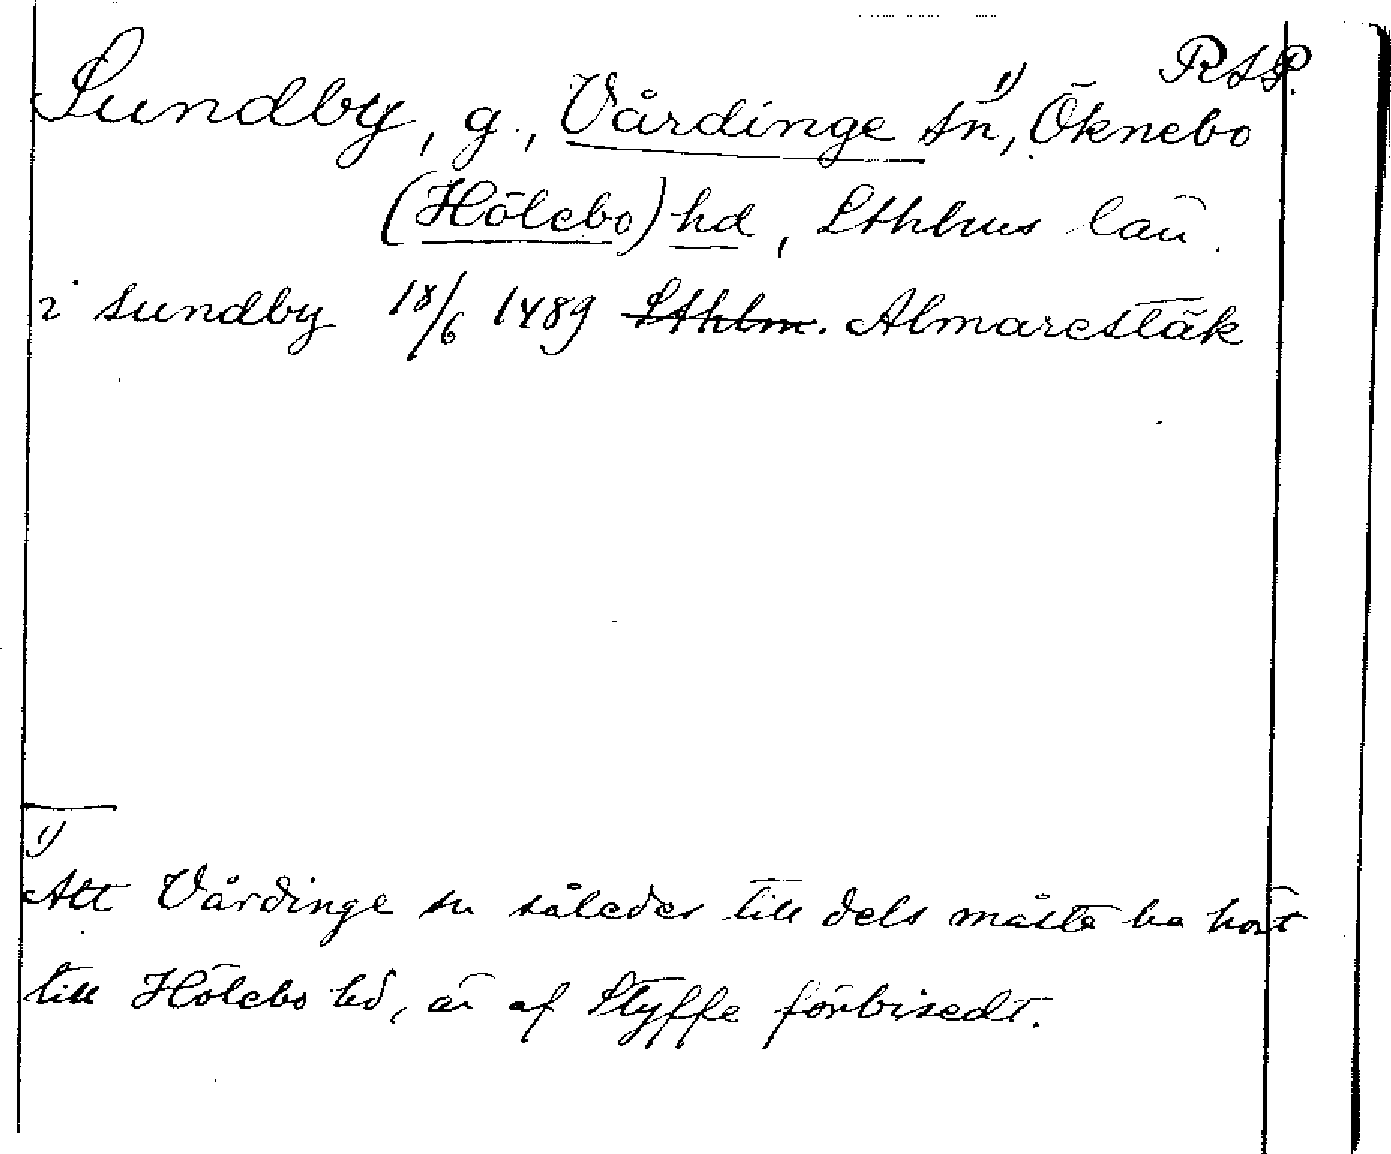 RAP.
Sundby, g., Vårdinge sn¹⁾, Öknebo
(Hölebo) hd, Sthlms län.
i sundby 18/6 1489 ~~Sthlm~~. Almarestäk
1)
Att Vårdinge sn således till dels måste ha hört
till Hölebo hd, är af Styffe förbisedt.